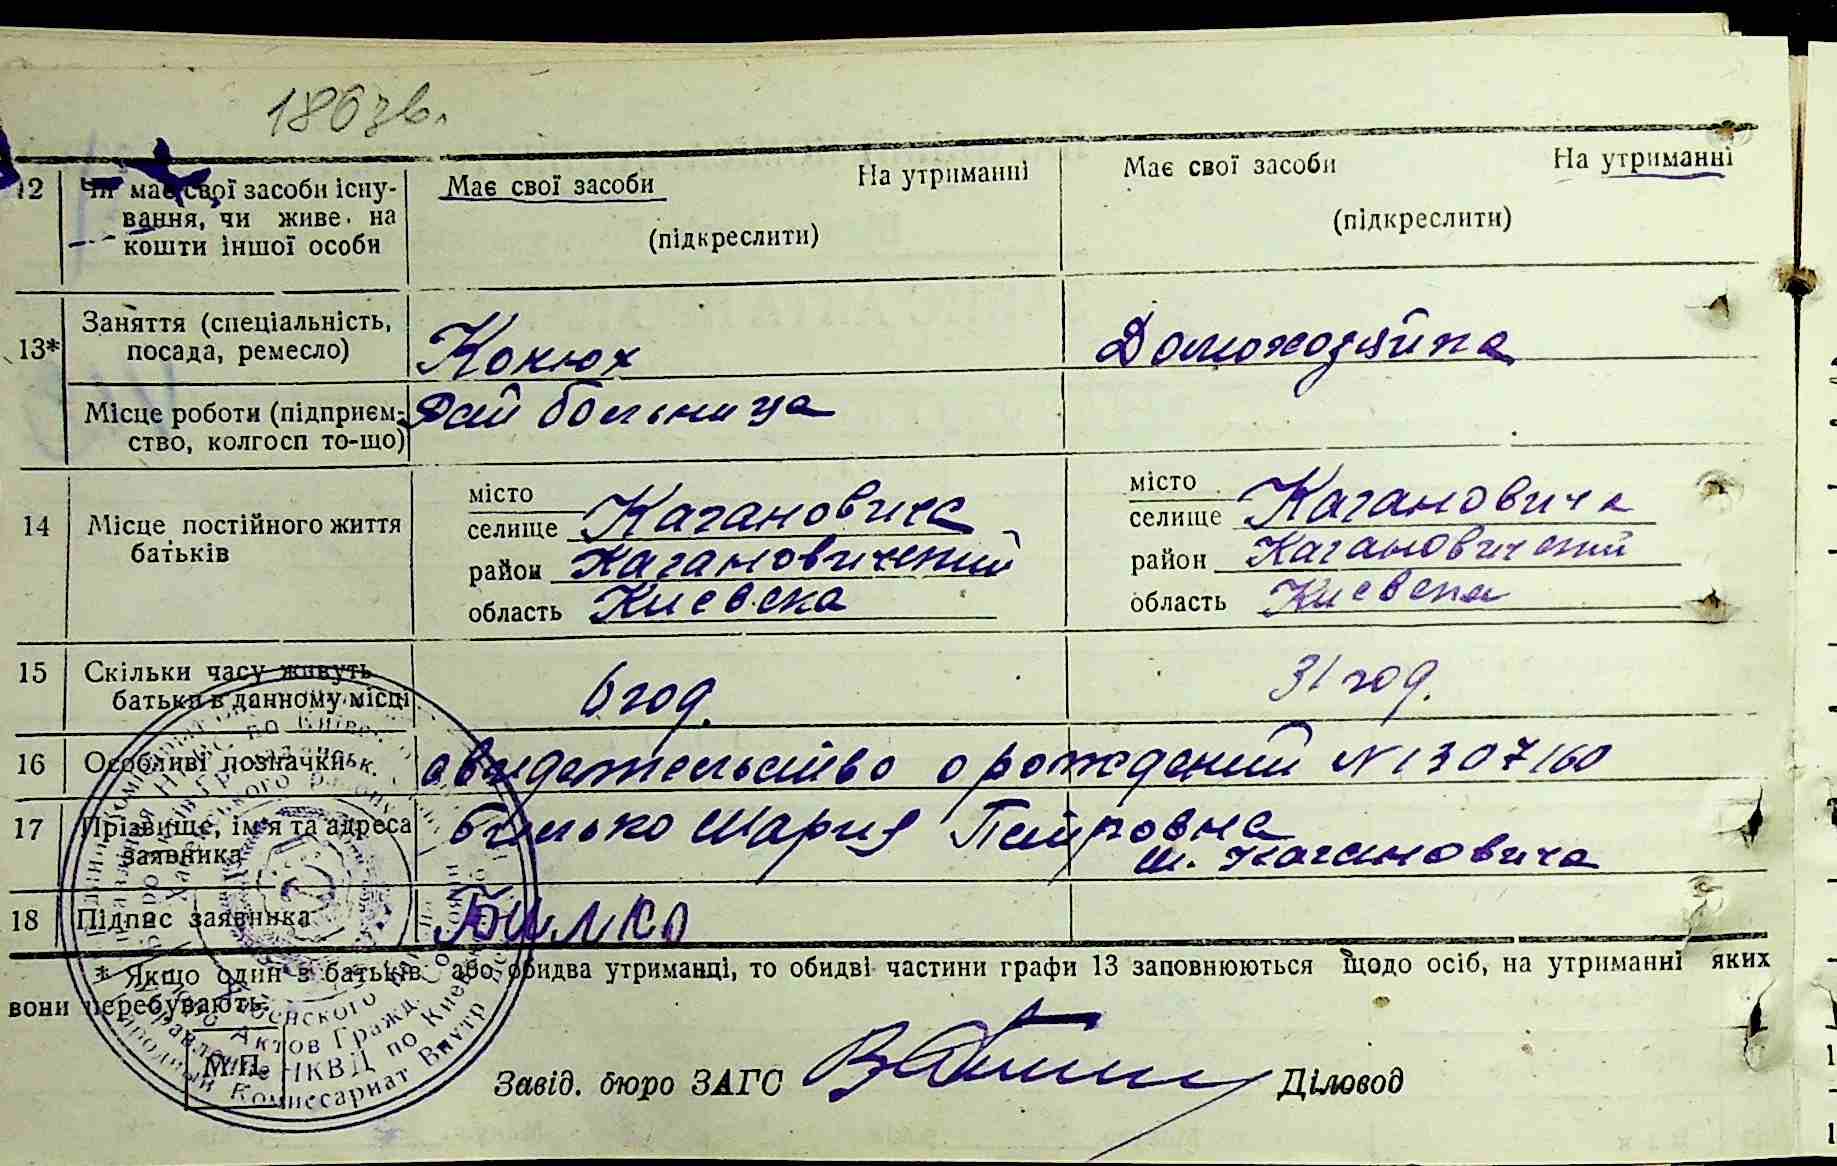 1867 в.
12 Чи має свої засоби існу- Має свої засоби На утриманні Має свої засоби На утриманні
вання, чи живе на (підкреслити) (підкреслити)
кошти іншої особи
13* Заняття (спеціальність, посада, ремесло) Конюх Домохозяйка
Місце роботи (підприєм- Рай больница
ство, колгосп то-що)
14 Місце постійного життя батьків
місто селище Кагановича місто селище Кагановича
район Кагановичеський район Кагановичеський
область Киевска область Киевска
15 Скільки часу живуть батьки в данному місці 6 год. 31 год.
16 Особливі позначки свидетельство о рождений № 1307160
17 Прізвище, ім'я та адреса Билько Мария Петровна
заявника м. Кагановича
18 Підпис заявника Билко
* Якщо один з батьків або обидва утриманці, то обидві частини графи 13 заповнюються щодо осіб, на утриманні яких
вони перебувають.
М.П.
Завід. бюро ЗАГС Діловод